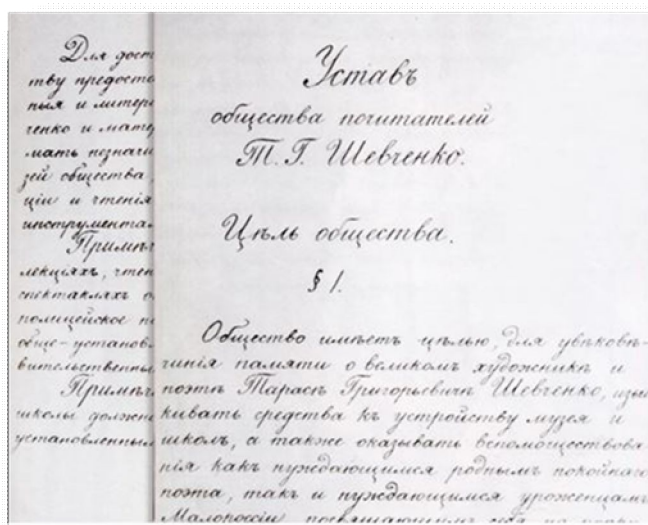 Для дост
тву предоста
ныя и литера
ченко и мате
мать незначи
зей общества,
ціи и чтенія
инструмента
Примѣч
лекціяхъ, чтен
спектакляхъ о
полицейское н
обще-установ-
вительственны
Примѣч
школы должен
установленным
Уставъ
общества почитателей
Т. Г. Шевченко.
Цѣль общества.
§ 1.
Общество имѣетъ цѣлью, для увѣковѣ-
ченія памяти о великомъ художникѣ и
поэтѣ Тарасѣ Григорьевичѣ Шевченко, изыс
кивать средства къ устройству музея и
школъ, а также оказывать вспомоществова
нія какъ нуждающимся роднымъ покойнаго
поэта, такъ и нуждающимся уроженцамъ
Малороссіи посвящающимъ себя на